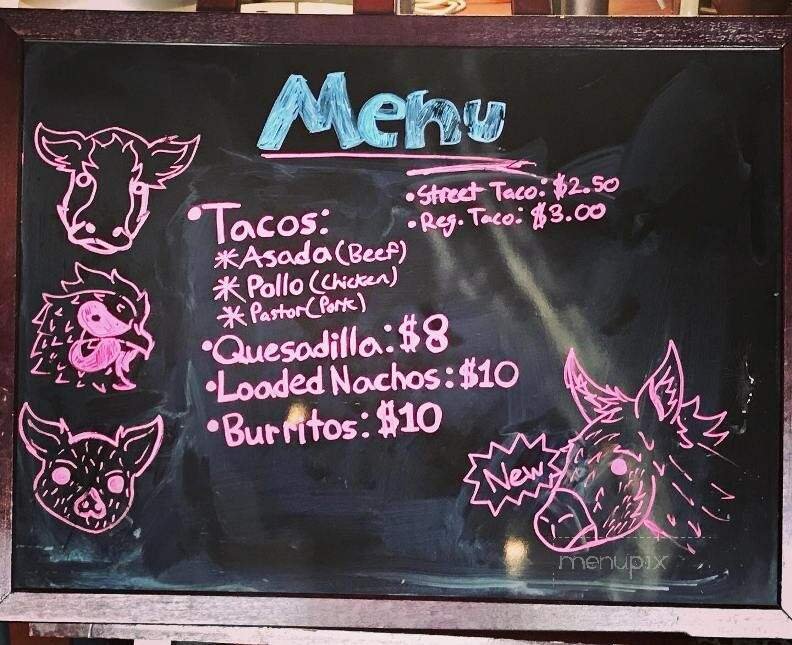 Menu
• Street Taco: $2.50
• Reg. Taco: $3.00
• Tacos:
* Asada (Beef)
* Pollo (Chicken)
* Pastor (Pork)
• Quesadilla: $8
• Loaded Nachos: $10
• Burritos: $10
New
menupix